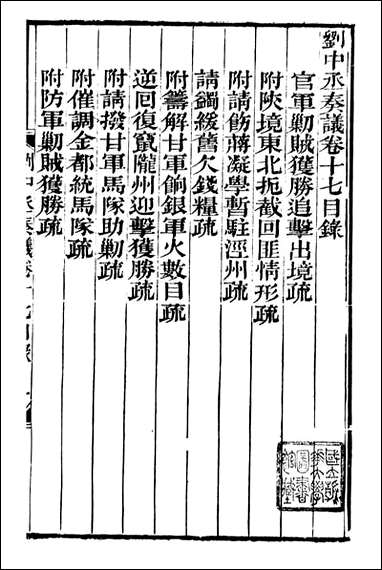 劉中丞奏議卷十七目錄
官軍勦賊獲勝追擊出境疏
附陝境東北扼截回匪情形疏
附請飭蔣凝學暫駐涇州疏
請蠲緩舊欠錢糧疏
附籌解甘軍餉銀軍火數目疏
逆回復竄隴州迎擊獲勝疏
附請撥甘軍馬隊助勦疏
附催調金都統馬隊疏
附防軍勦賊獲勝疏